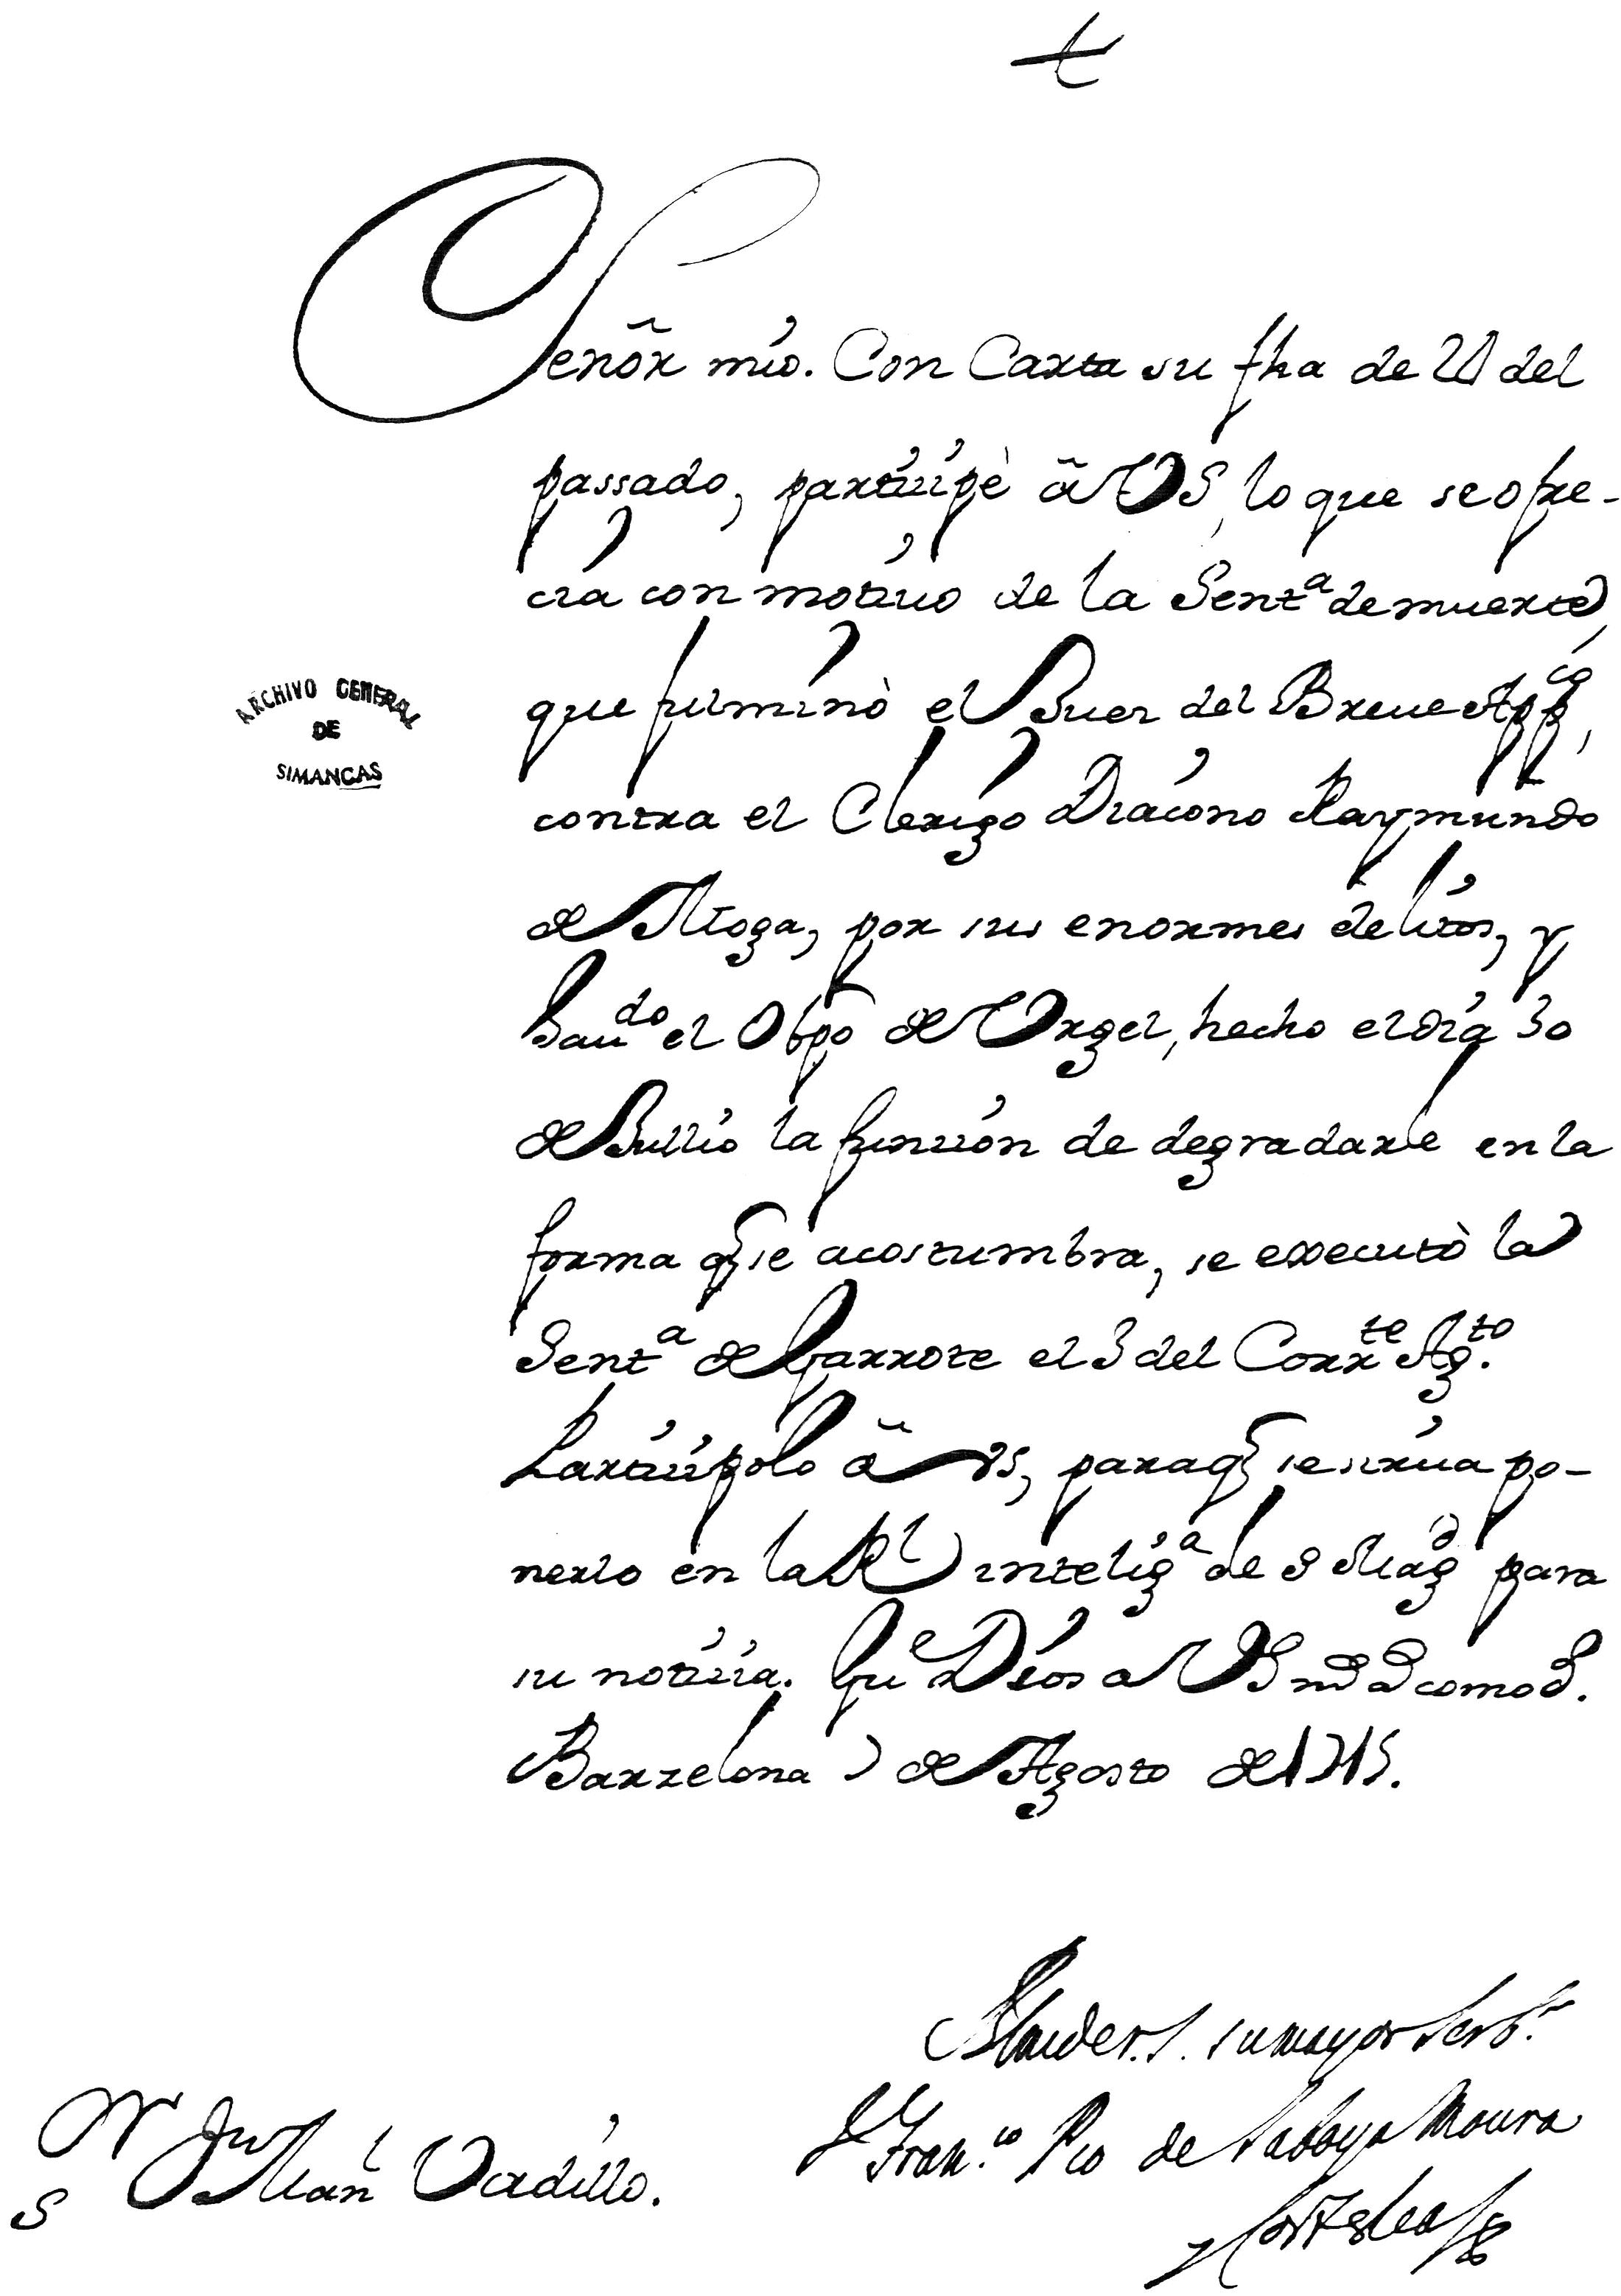 Señor mio. Con Carta su fha de 20 del
passado, participè â VS, lo que se ofre-
cia con motiuo de la Sent.ª de muerte,
que fulminò el Juez del Breue App.co,
contra el Clerigo Diacono Raymundo
de Moga, por sus enormes delitos, y
hau.do el Obpo de Vrgel, hecho el dia 30
de Jullio la funcion de degradarle en la
forma q se acostumbra, se executò la
Sent.ª de Garrote el 3 del Corr.te Ag.to
Participolo â VS, para q se sirua po-
nerlo en la Rl intelig.ª de S Mag.d para
su noticia. Gu.e Dios a VS m.s a.s como d.
Barzelona 7 de Agosto de 1715.
ARCHIVO GENERAL
DE
SIMANCAS
su mayor serb.r
Fran.co Pio de Saboya Moura
Sr Dn
Mañl Vadillo.